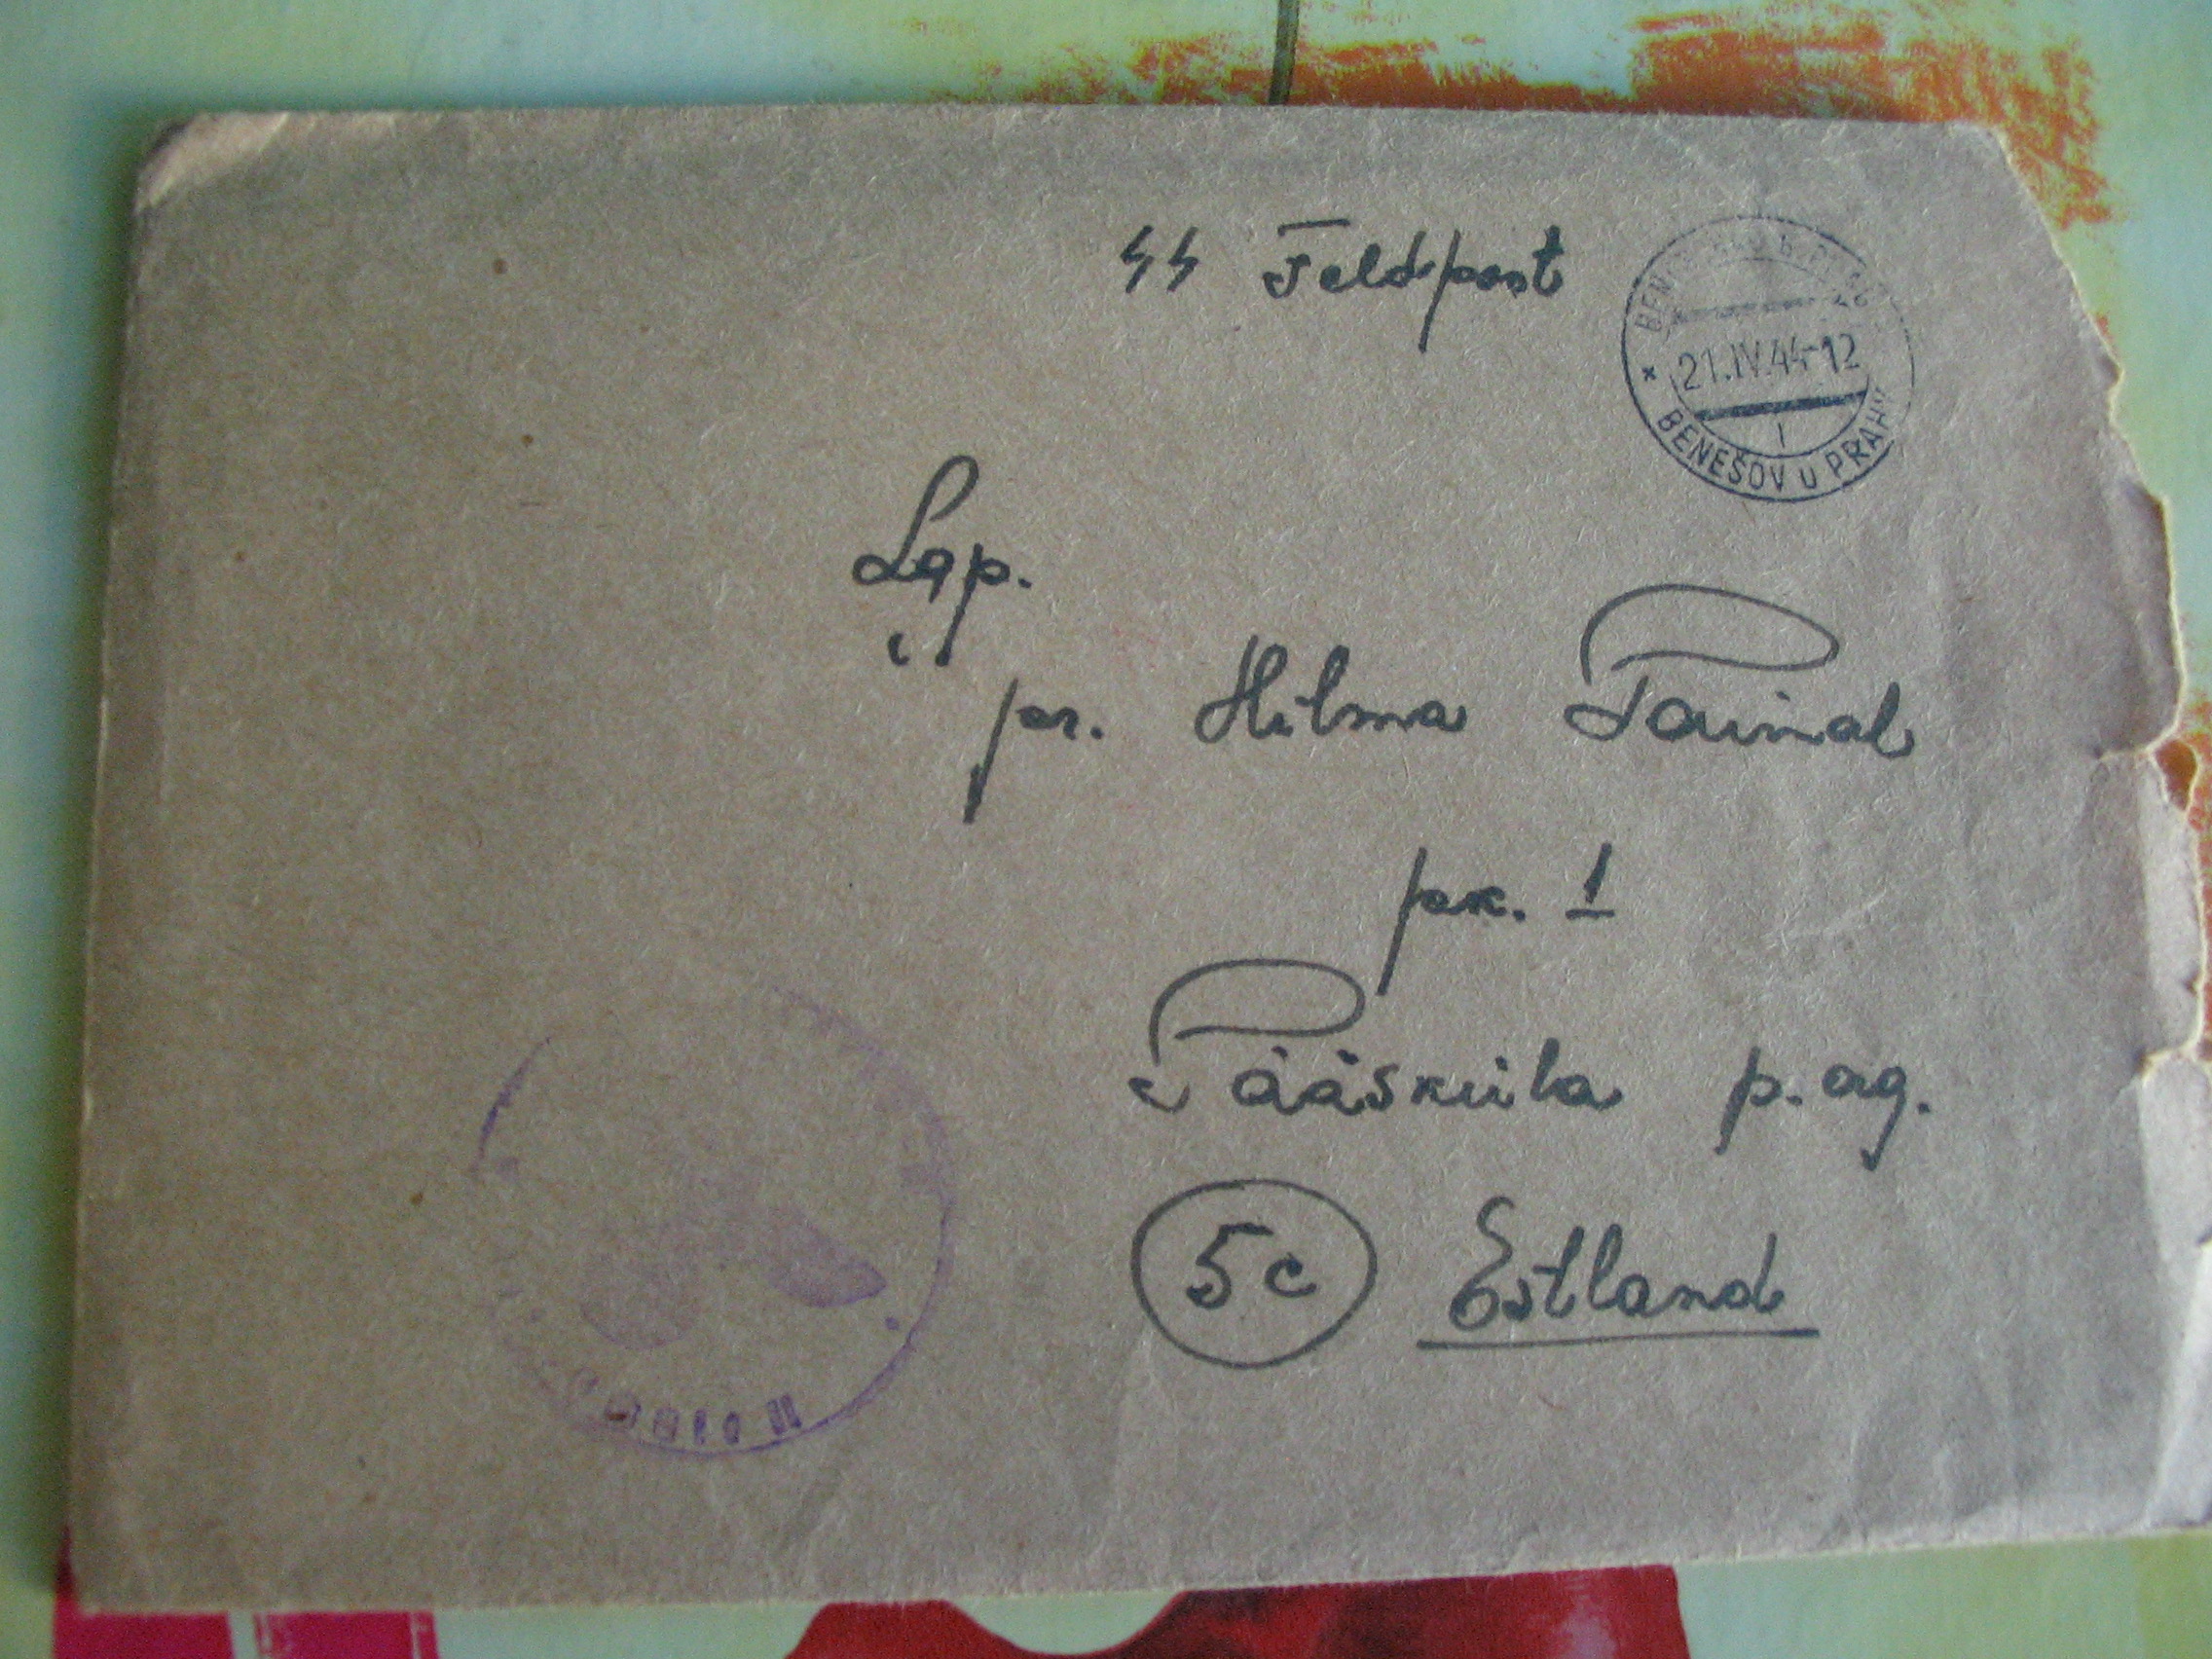 SS Feldpost
21.IV.44-12
BENEŠOV u PRAHY
Lap.
pr. Hilma Tainal
pk. 1
Pääsküla p. ag.
5c Estland